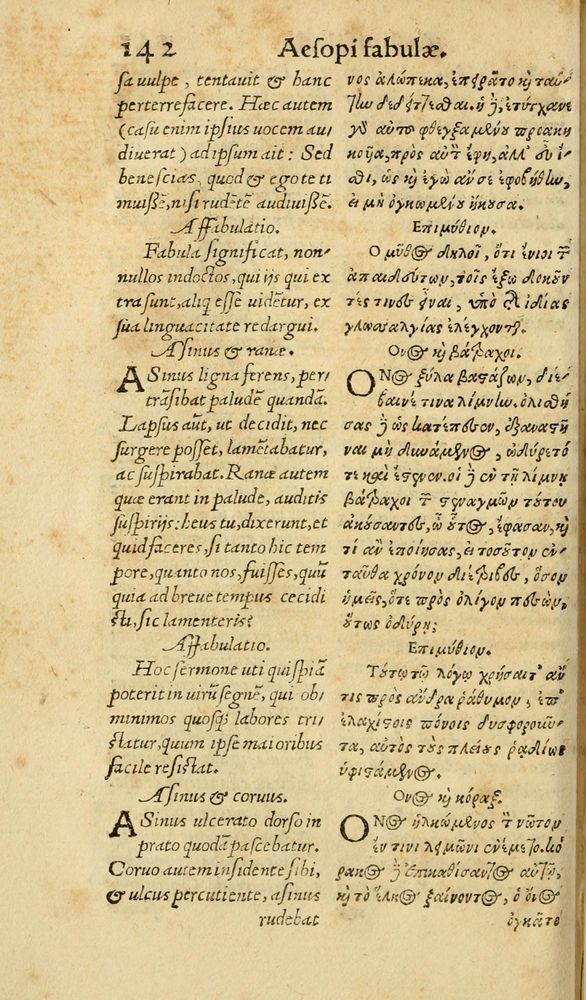 142 Aesopi fabulæ.
sa uulpe, tentauit & hanc
perterrefacere. Hæc autem
(casu enim ipsius uocem au/
diuerat) ad ipsum ait: Sed
bene scias, quod & ego te ti
muissē, nisi rudētē audiuissē.
Affabulatio.
Fabula significat, non-
nullos indoctos, qui ijs qui ex
tra sunt, aliq̨ esse uidētur, ex
sua linguacitate redargui.
Asinus & ranæ.
ASinus ligna ferens, per/
trāsibat paludē quandā.
Lapsus aūt, ut decidit, nec
surgere posset, lamētabatur,
ac suspirabat. Ranæ autem
quæ erant in palude, auditis
suspirijs: heus tu, dixerunt, et
quid faceres, si tanto hic tem
pore, quanto nos, fuisses, quū
quia ad breue tempus cecidi
sti, sic lamenteris?
Affabulatio.
Hoc sermone uti quispiā
poterit in uirū segnē, qui ob/
minimos quosq̨ labores tri/
statur, quum ipse maioribus
facile resistat.
Asinus & coruus.
ASinus ulcerato dorso in
prato quodā pascebatur.
Coruo autem insidente sibi,
& ulcus percutiente, asinus
rudebat
νος ἀλώπεκα, ἐπειρᾶτο καὶ ταύ-
την δεδίττεσθαι. ἡ δὲ, ἐτύγχανε
γὸ αὐτοῦ φθεγξαμένου προακη
κουῖα, πρὸς αὐτὸν ἔφη, ἀλλ' εὖ ἴ-
σθι, ὡς καὶ ἐγὼ ἄν σε ἐφοβήθην,
εἰ μὴ ὀγκωμένου ἤκουσα.
Επιμύθιον.
Ο μῦθος δηλοῖ, ὅτι ἔνιοι τῶν
ἀπαιδεύτων, τοῖς ἔξω δοκοῦν
τές τινες εἶναι, ὑπὸ τῆς ἰδίας
γλωσσαλγίας ἐλέγχονται.
Ονος καὶ βάτραχοι.
ΟΝος ξύλα βαστάζων, διέ-
βαινέ τινα λίμνην. ὀλισθή
σας δὲ ὡς κατέπεσεν, ἐξαναστῆ
ναι μὴ δυνάμενος, ὠδύρετό
τε καὶ ἔστενεν. οἱ δὲ ἐν τῇ λίμνῃ
βάτραχοι τῶν στεναγμῶν τούτου
ἀκούσαντες, ὦ οὗτος, ἔφασαν, καὶ
τί ἂν ἐποίησας, εἰ τοσοῦτον ἐν-
ταῦθα χρόνον διέτριβες, ὅσον
ἡμεῖς, ὅτε πρὸς ὀλίγον πεσὼν,
οὕτως ὀδύρῃ;
Επιμύθιον.
Τούτῳ τῷ λόγῳ χρήσαιτ' ἄν
τις πρὸς ἄνδρα ῥάθυμον, ἐπ'
ἐλαχίστοις πόνοις δυσφοροῦν-
τα, αὐτὸς τοὺς πλείους ῥαδίως
ὑφιστάμενος.
Ονος καὶ κόραξ.
ΟΝος ἡλκωμένος τὸν νῶτον
ἔν τινι λειμῶνι ἐνέμετο. κό
ρακος δὲ ἐπικαθίσαντος αὐτῷ,
καὶ τὸ ἕλκος ξαίνοντος, ὁ ὄνος
ὀγκᾶτο